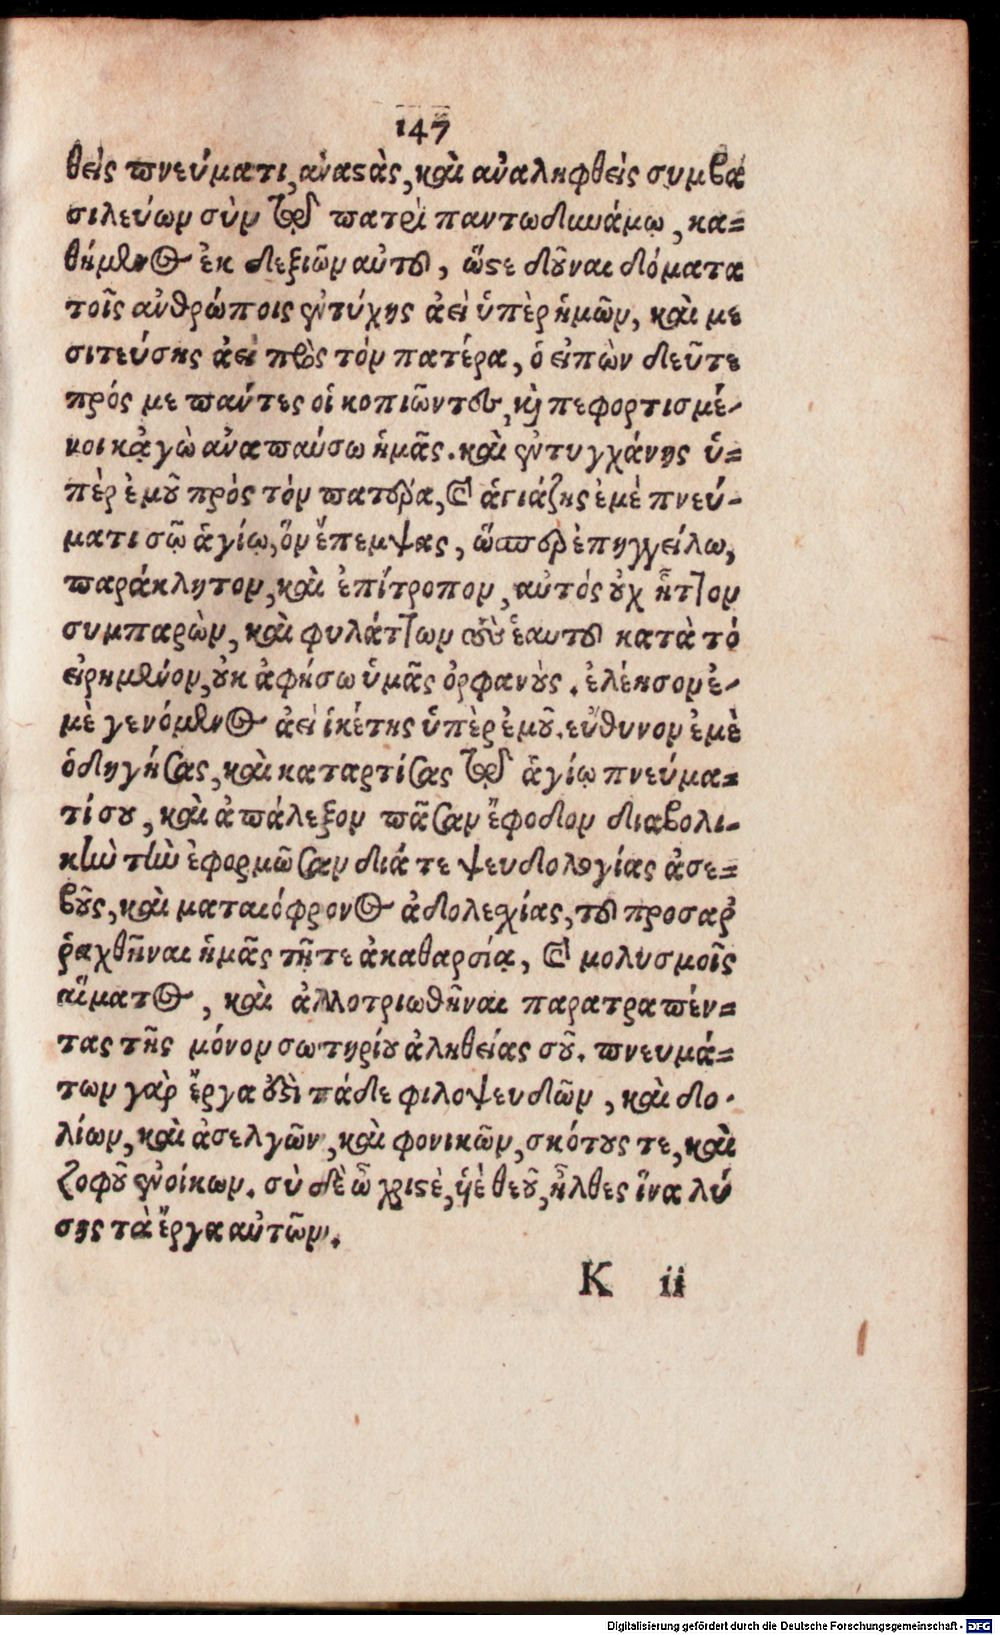 147
θεὶς πνεύματι, ἀναστὰς, καὶ ἀναληφθεὶς συμβα
σιλεύων σὺν τῷ πατρὶ παντοδυνάμῳ, κα=
θήμενος ἐκ δεξιῶν αὐτοῦ, ὥστε δοῦναι δόματα
τοῖς ἀνθρώποις ἐντύχης ἀεὶ ὑπὲρ ἡμῶν, καὶ με
σιτεύσης ἀεὶ πρὸς τὸν πατέρα, ὁ εἰπὼν δεῦτε
πρός με πάντες οἱ κοπιῶντες, καὶ πεφορτισμέ-
νοι κᾀγὼ ἀναπαύσω ἡμᾶς. καὶ ἐντυγχάνης ὑ=
πὲρ ἐμοῦ πρὸς τὸν πατέρα, καὶ ἁγιάζης ἐμὲ πνεύ-
ματι σῷ ἁγίῳ, ὃν ἔπεμψας, ὥσπερ ἐπηγγείλω,
παράκλητον, καὶ ἐπίτροπον, αὐτός οὐχ ἧττον
συμπαρὼν, καὶ φυλάττων ἑαυτοῦ κατὰ τό
εἰρημένον, οὐκ ἀφήσω ὑμᾶς ὀρφανούς. ἐλέησον ἐ-
μὲ γενόμενος ἀεὶ ἱκέτης ὑπὲρ ἐμοῦ. εὔθυνον ἐμὲ
ὁδηγήσας, καὶ καταρτίσας τῷ ἁγίῳ πνεύμα=
τί σου, καὶ ἀπάλεξον πᾶσαν ἔφοδον διαβολι-
κὴν τὴν ἐφορμῶσαν διά τε ψευδολογίας ἀσε=
βοῦς, καὶ ματαιόφρονος ἀδολεχίας, τοῦ προσαῤ
ῥαχθῆναι ἡμᾶς τῇ τε ἀκαθαρσίᾳ, καὶ μολυσμοῖς
αἵματος, καὶ ἀλλοτριωθῆναι παρατραπέν=
τας τῆς μόνον σωτηρίου ἀληθείας σοῦ. πνευμά=
των γὰρ ἔργα ἐστὶ τάδε φιλοψευδῶν, καὶ δο-
λίων, καὶ ἀσελγῶν, καὶ φονικῶν, σκότους τε, καὶ
ζοφοῦ ἐνοίκων. σὺ δὲ ὦ χριστὲ, ὑὲ θεοῦ, ἦλθες ἵνα λύ
σης τὰ ἔργα αὐτῶν.
K ii
Digitalisierung gefördert durch die Deutsche Forschungsgemeinschaft - DFG